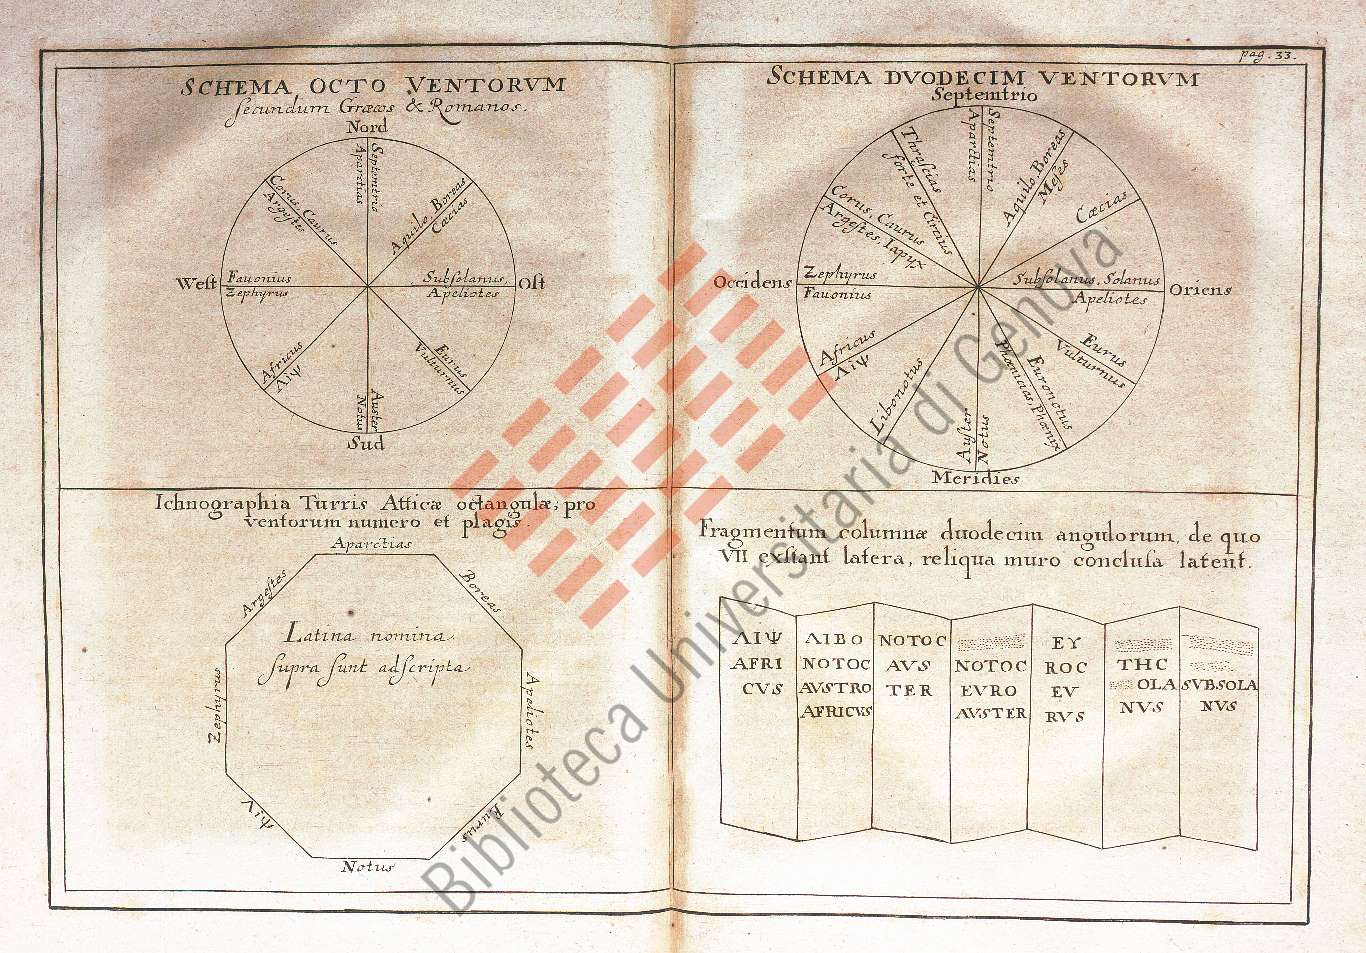 pag. 33.
SCHEMA OCTO VENTORVM
secundum Græcos & Romanos.
Nord
Septemtris
Aparctias
Aquilo, Boreas
Cæcias
Subsolanus,
Apeliotes
Ost
Eurus
Vulturnus
Auster
Notus
Sud
Africus
Λιψ
West
Favonius
Zephyrus
Corus, Caurus
Argestes
SCHEMA DVODECIM VENTORVM
Septemtrio
Septemtrio
Aparctias
Aquilo, Boreas
Meses
Cæcias
Subsolanus, Solanus
Apeliotes
Oriens
Eurus
Vulturnus
Euronotus
Phœnicias, Phœnix
Notus
Auster
Meridies
Libonotus
Africus
Λιψ
Occidens
Zephyrus
Favonius
Corus, Caurus
Argestes, Iapyx
Thrascias
forte et Circius
Ichnographia Turris Atticæ octangulæ, pro
ventorum numero et plagis.
Aparctias
Boreas
Apeliotes
Eurus
Notus
Λιψ
Zephyrus
Argestes
Latina nomina
supra sunt adscripta
Fragmentum columnæ duodecim angulorum, de quo
VII exstant latera, reliqua muro conclusa latent.
ΛΙΨ
AFRI
CVS
ΛΙΒΟ
NOTOC
AVSTRO
AFRICVS
NOTOC
AVS
TER
NOTOC
EVRO
AVSTER
EY
ROC
EV
RVS
THC
OLA
NVS
SVBSOLA
NVS
Biblioteca Universitaria di Genova